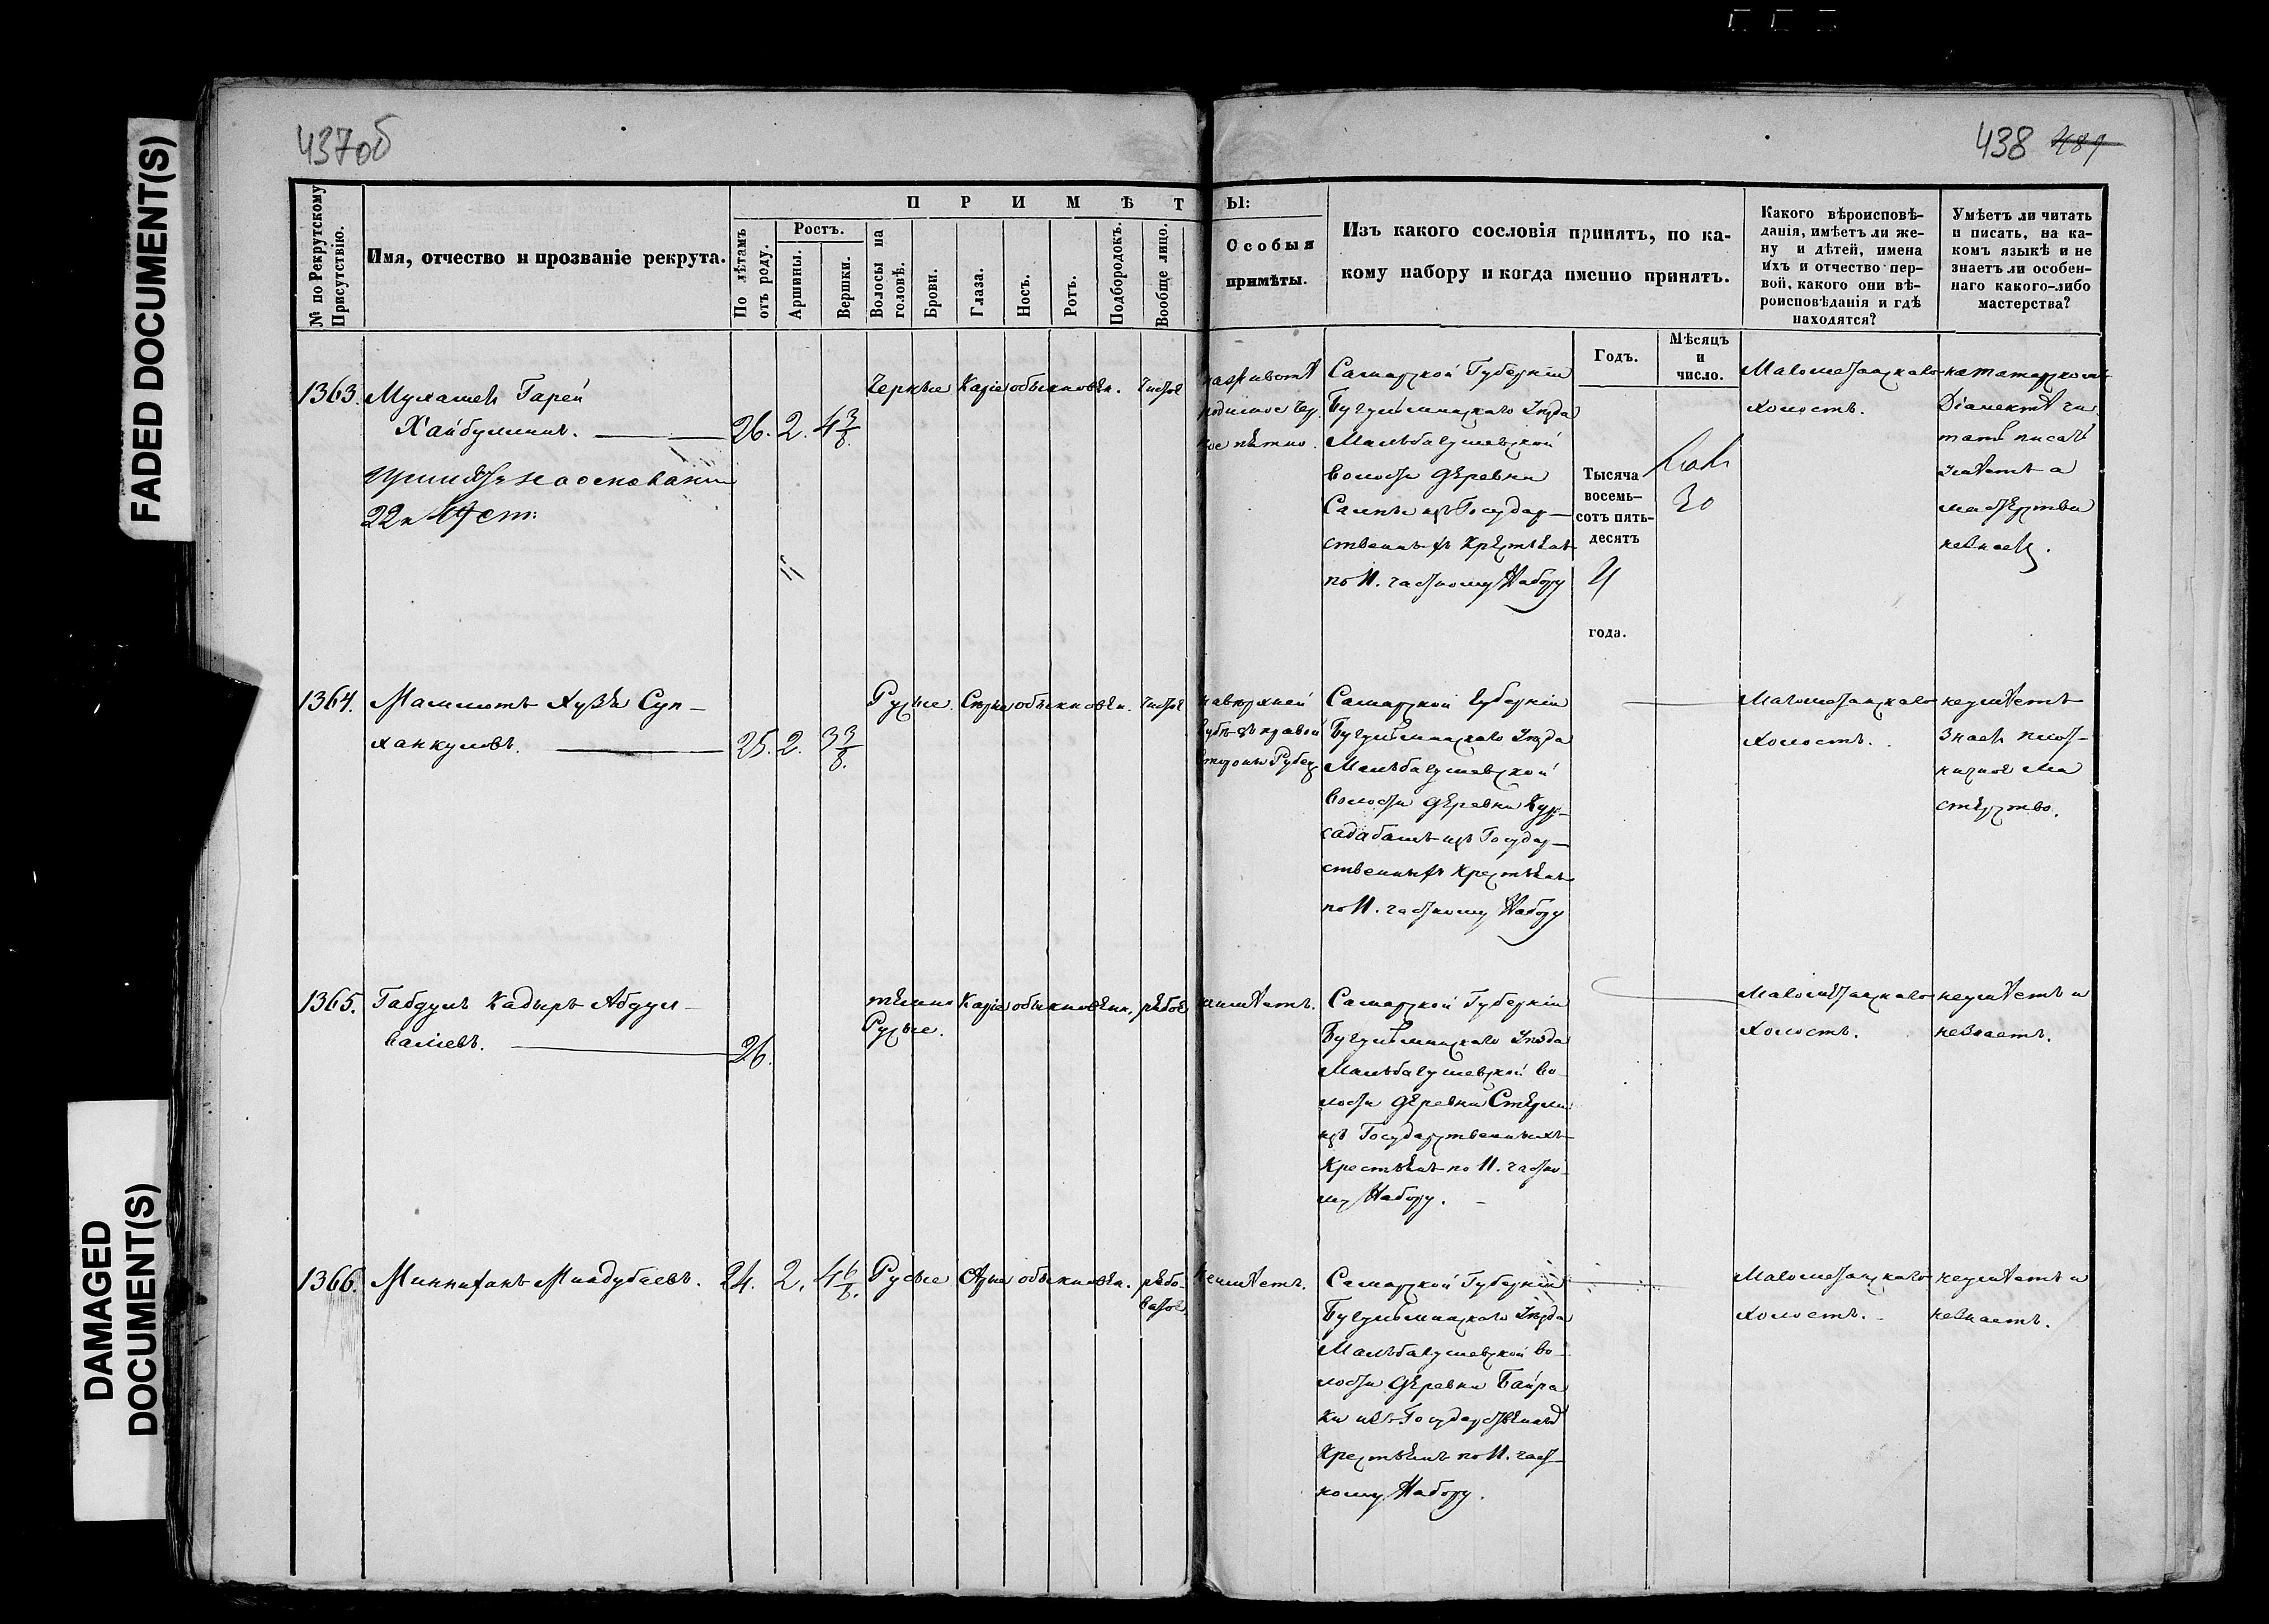 FADED DOCUMENT(S)
DAMAGED
DOCUMENT(S)
437об
438 489
№ по Рекрутскому
Присутствію.
Имя, отчество и прозваніе рекрута.
ПРИМѢТЫ:
По лѣтамъ
отъ роду.
Ростъ.
Аршины.
Вершки.
Волосы на
головѣ.
Брови.
Глаза.
Носъ.
Ротъ.
Подбородокъ.
Вообще лицо.
Особыя
примѣты.
Изъ какого сословія принятъ, по ка-
кому набору и когда именно принятъ.
Годъ.
Мѣсяцъ
и
число.
Какого вѣроисповѣ-
данія, имѣетъ ли же-
ну и дѣтей, имена
ихъ и отчество пер-
вой, какого они вѣ-
роисповѣданія и гдѣ
находятся?
Умѣетъ ли читать
и писать, на ка-
комъ языкѣ и не
знаетъ ли особен-
наго какого-либо
мастерства?
1363.
Мухамет Гарей
Хайбуллинъ.
26. 2. 4 3/8.
на основани
22 и 47 ст:
Черные Каріе обыкновен. чистое
на животѣ
родимое чер
ное пятно.
Самарской Губерніи
Бугульминскаго Уѣзда
Мальбагушевской
волости деревни
изъ Государ-
ственныхъ Крестьянъ
по 11. частному Набору
Тысяча
восемь-
сотъ пять-
десятъ
4
года.
30
Магометанскаго
холостъ.
на татарскомъ
Діалектѣ чи
тать писать
умѣетъ а
мастерства
незнаетъ.
1364.
Мамметъ Суп-
ханкуловъ.
25. 2. 3 3/8.
Русые. Серые обыкновен. чистое
на верхней
губѣ съ правой
стороны Рубец
Самарской Губерніи
Бугульминскаго Уѣзда
Мальбагушевской
волости деревни Кур-
садабашъ изъ Государ-
ственныхъ Крестьянъ
по 11. частному Набору
Магометанскаго
холостъ.
неумѣетъ
Знает плот-
ничное ма
стерство.
1365.
Габдулъ Кадыръ Абдул-
валіевъ.
26.
темно
Русые.
Каріе обыкновен. рябое
неимѣетъ.
Самарской Губерніи
Бугульминскаго Уѣзда
Мальбагушевской во-
лости деревни Стерли
изъ Государственныхъ
Крестьянъ по 11. частно-
му Набору.
Магометанскаго
холостъ.
неумѣетъ и
незнаетъ.
1366.
Миннихан Миндубаевъ.
24. 2. 4 6/8.
Русые обыкновен. рябо-
ватое.
неимѣетъ.
Самарской Губерніи
Бугульминскаго Уѣзда
Мальбагушевской во-
лости деревни Байра
ки изъ Государственных
Крестьянъ по 11. част-
ному Набору.
Магометанскаго
холостъ.
неумѣетъ и
незнаетъ.